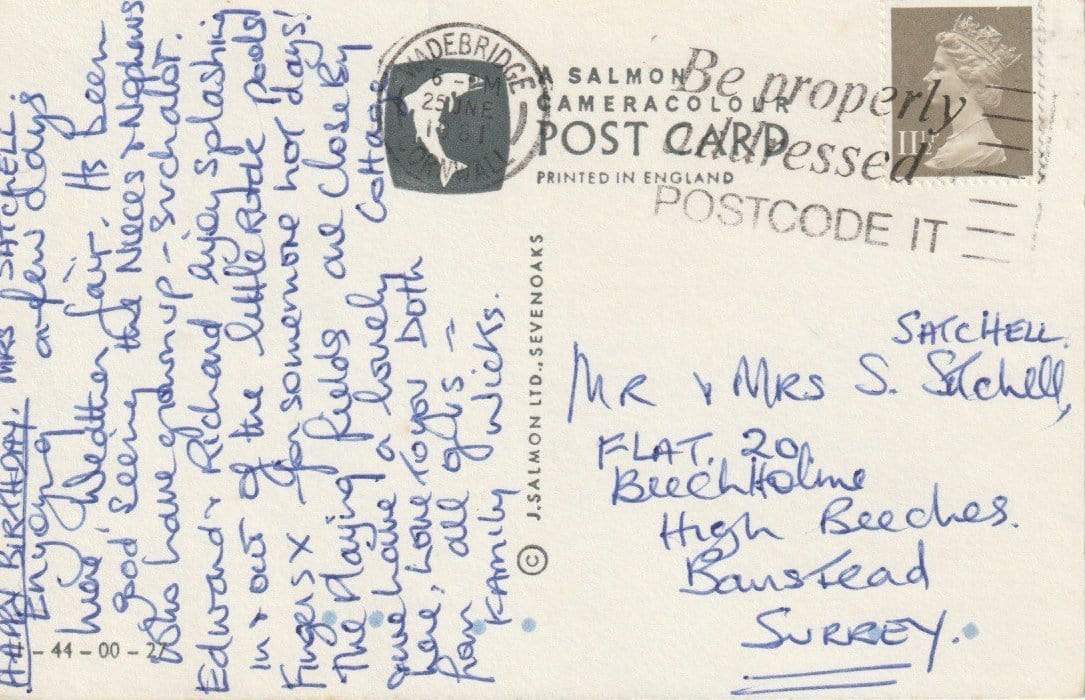 HAPPY BIRTHDAY. MRS SATCHELL.
Enjoying a few days
here, Weather fair. Its been
good seeing the Nieces & Nephews
who have grown up - Such a lot.
Edward & Richard enjoy Splashing
in & out of the little Rock Pools!
Fingers X for some more hot days!
The Playing fields are close by
& we have a lovely Cottage
here, Love to you both
from all of us -
Family Wicks.
1-44-00-27
© J. SALMON LTD., SEVENOAKS
WADEBRIDGE
6 - PM
25 JUNE
CORNWALL
A SALMON
CAMERACOLOUR
POST CARD
PRINTED IN ENGLAND
Be properly
addressed
POSTCODE IT
SATCHELL.
MR & MRS S. Satchell,
FLAT. 20.
BeechHolme
High Beeches.
Banstead
SURREY.